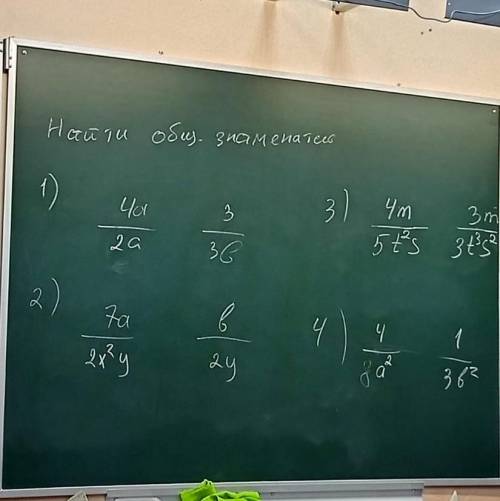 Найти общ. знаменатель
1) 4a/2a 3/3b
3) 4m/5t²s 3m/3t³s²
2) 7a/2x²y b/2y
4) 4/8a² 1/3b²